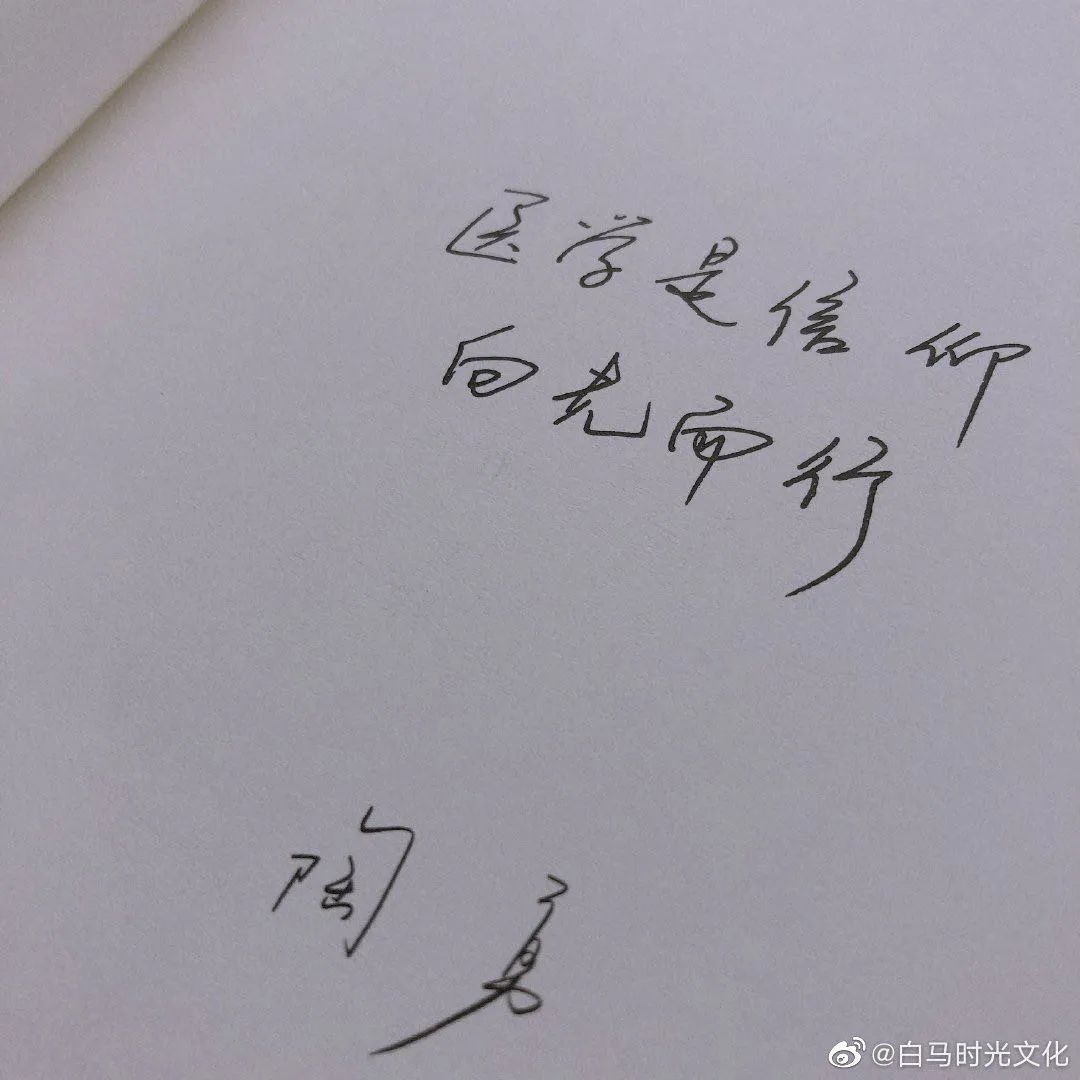 医学是信仰
向光而行
陶勇
@白马时光文化